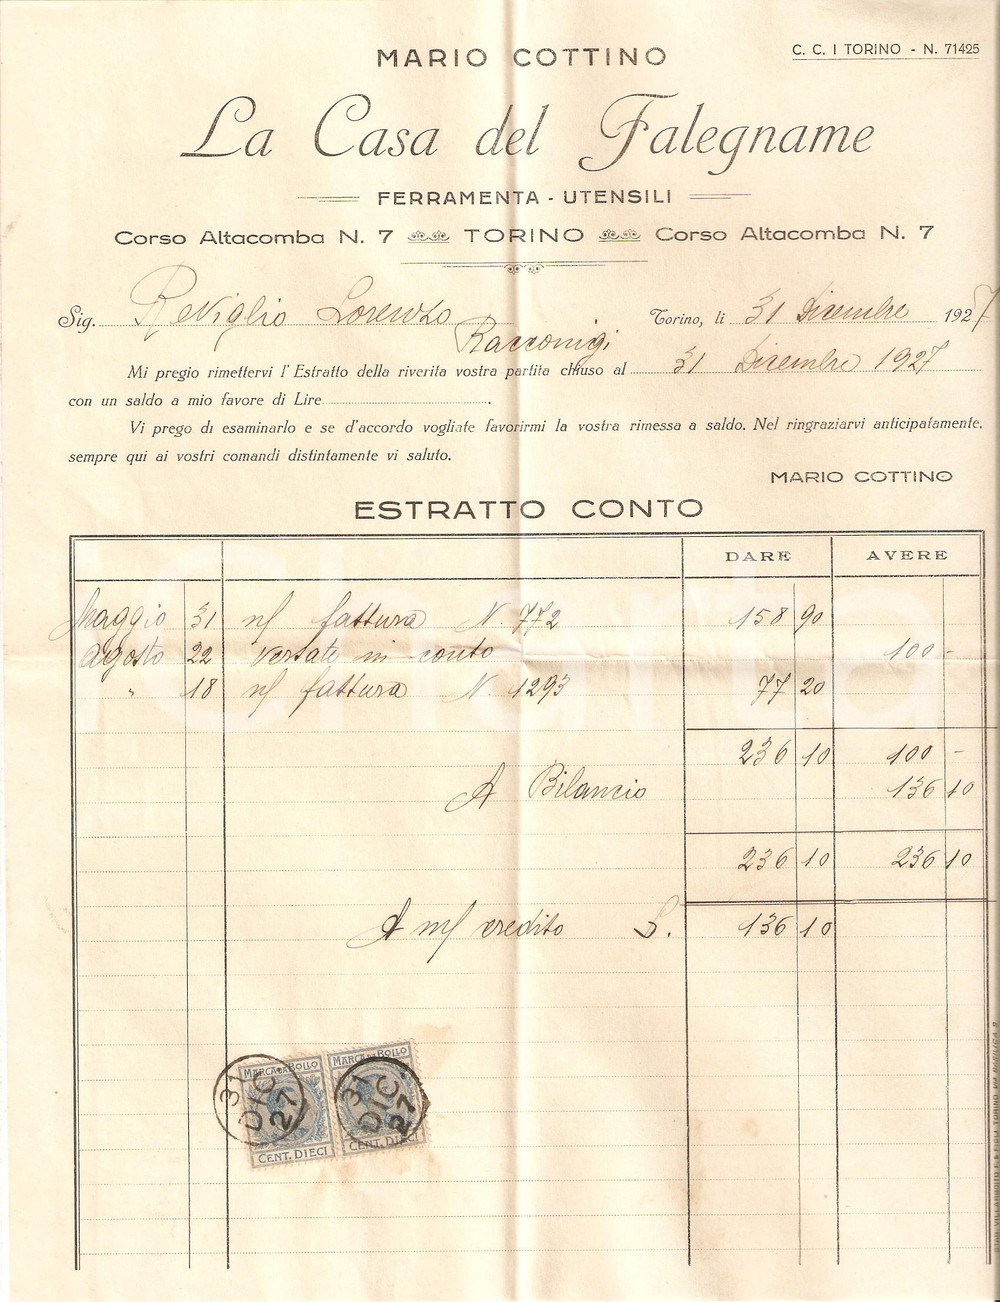 C. C. I TORINO - N. 71425
MARIO COTTINO
La Casa del Falegname
FERRAMENTA - UTENSILI
Corso Altacomba N. 7 TORINO Corso Altacomba N. 7
Sig. Reviglio Lorenzo Torino, li 31 Dicembre 1927
Racconigi
Mi pregio rimettervi l' Estratto della riverita vostra partita chiuso al 31 Dicembre 1927
con un saldo a mio favore di Lire .
Vi prego di esaminarlo e se d'accordo vogliate favorirmi la vostra rimessa a saldo. Nel ringraziarvi anticipatamente.
sempre qui ai vostri comandi distintamente vi saluto.
MARIO COTTINO
ESTRATTO CONTO
DARE AVERE
Maggio 31 n/ fattura N. 772 158 90
Agosto 22 versato in conto 100 -
" 18 n/ fattura N. 1293 77 20
236 10 100 -
A Bilancio 136 10
236 10 236 10
A m/ credito L. 136 10
MARCA DA BOLLO MARCA DA BOLLO
31 DIC. 27 31 DIC. 27
CENT. DIECI CENT. DIECI